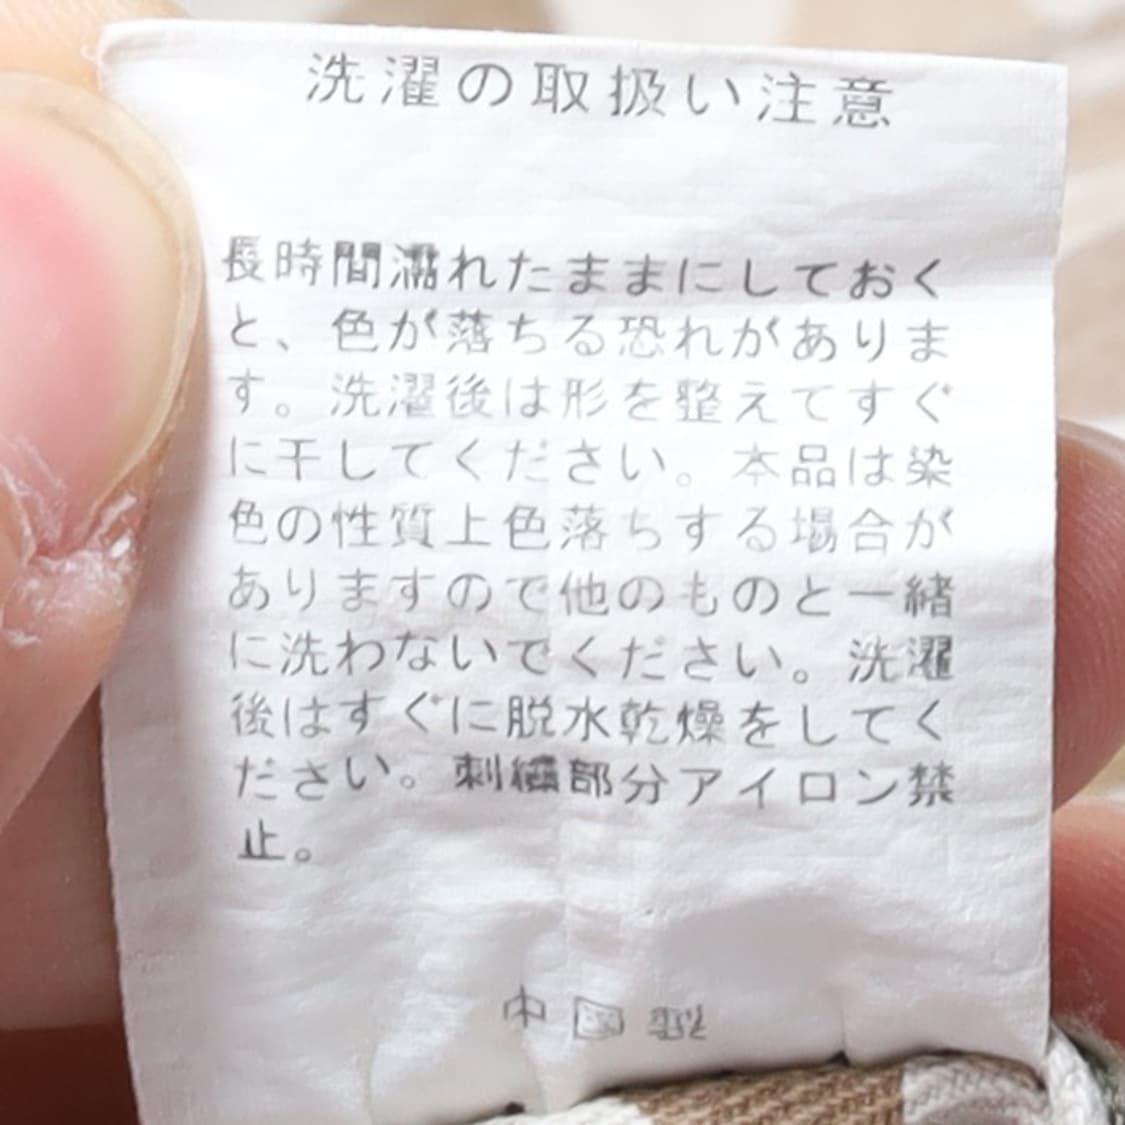 洗濯の取扱い注意
長時間濡れたままにしておく
と、色が落ちる恐れがありま
す。洗濯後は形を整えてすぐ
に干してください。本品は染
色の性質上色落ちする場合が
ありますので他のものと一緒
に洗わないでください。洗濯
後はすぐに脱水乾燥をしてく
ださい。刺繍部分アイロン禁
止。
中国製